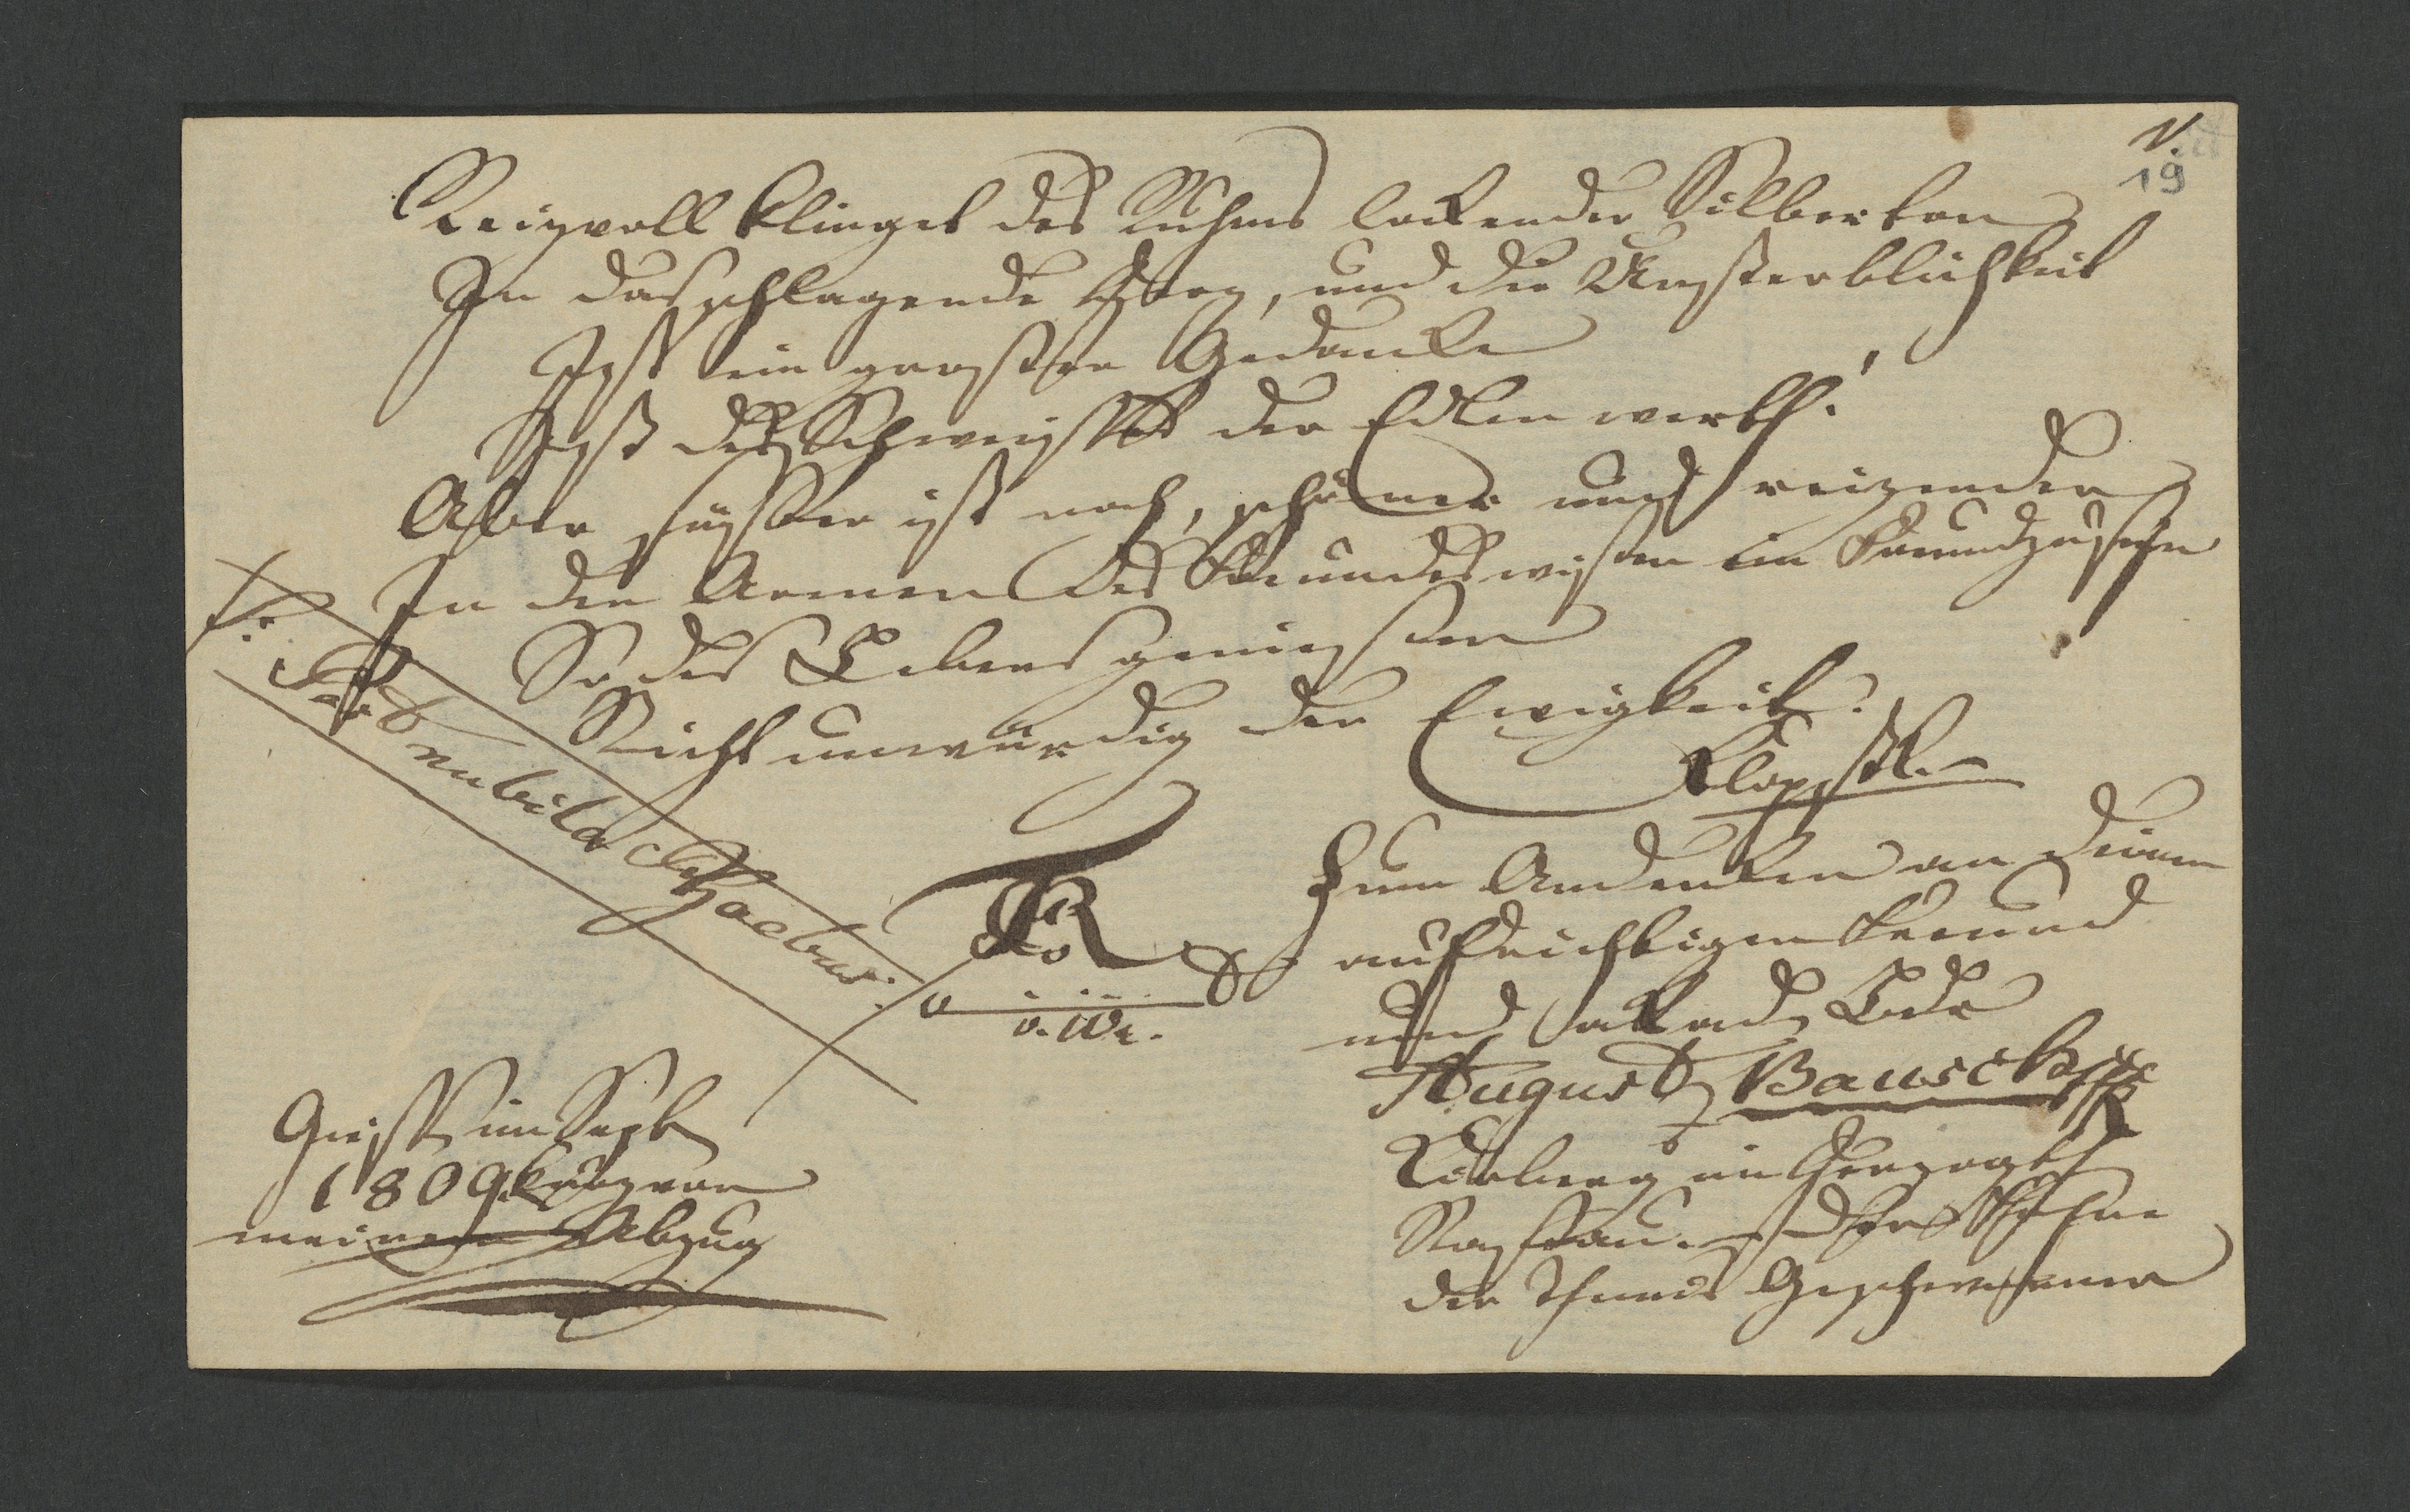 V.
19
Reizvoll klinget des Ruhms lockender Silberton
In das schlagende Herz, und die Unsterblichkeit
Ist ein grosser Gedanke
Ist des Schweisses der Edlen werth!
Aber süsser ist noch, schöner und reizender
In den Armen des Freundes wissen ein Freund zu seyn
So das Leben geniessen
Nicht unwürdig der Ewigkeit!
Klopst.
Post nubila Phoebus
v. W.
Zum Andenken an Deinen
aufrichtigen Freund
und akad.
August Bausch
im Herzogth
Nassau. der
der Geschwornen
im Sept
1809 kurz vor
meinem Abzug